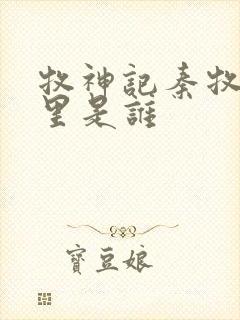 牧神記秦牧
里是誰
寶豆娘